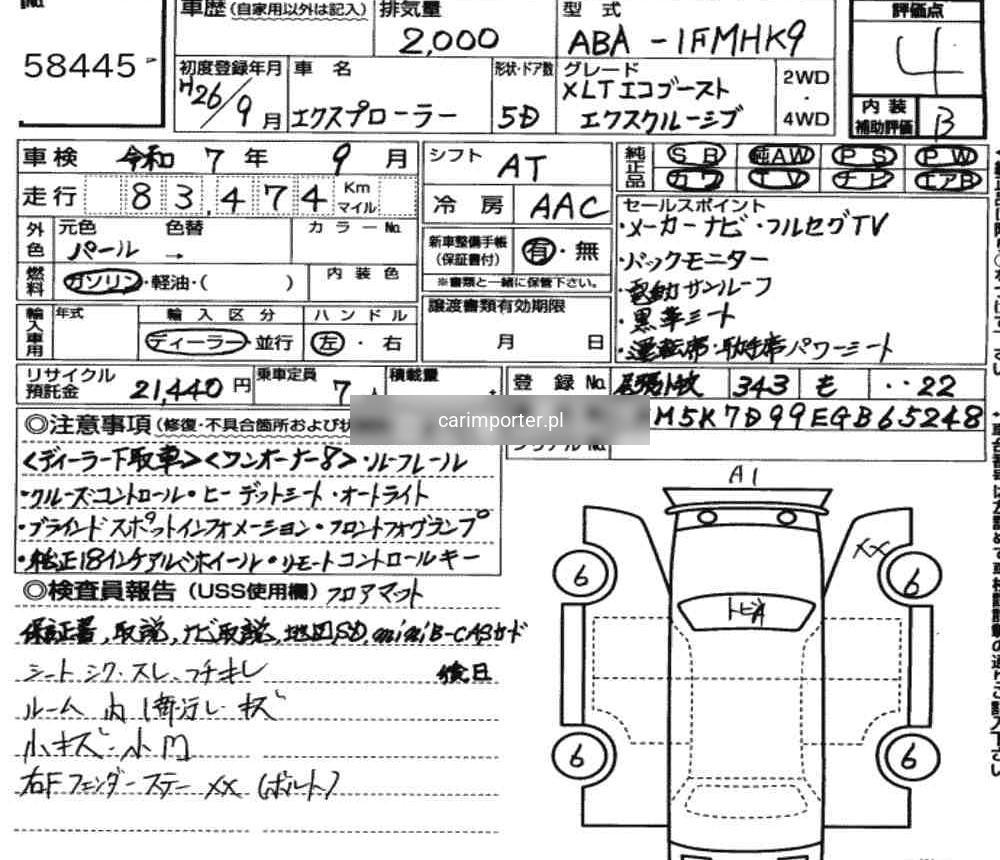 No.
58445
車歴 (自家用以外は記入)
排気量
2,000
型式
ABA-1FMHK9
評価点
4
内装補助評価 B
初度登録年月
H26/9月
車名
エクスプローラー
形状・ドア数
5D
グレード
XLTエコブースト
エクスクルーシブ
2WD
・
4WD
車検 令和 7年 9月
走行 83,474 Km マイル
シフト AT
冷房 AAC
純正品 SB 純AW PS PW
カワ TV ナビ エアB
外色 元色 色替 カラーNo.
パール →
燃料 ガソリン・軽油・( )
内装色
新車整備手帳 (保証書付) 有・無
※書類と一緒に保管下さい。
譲渡書類有効期限
月 日
セールスポイント
・メーカーナビ・フルセグTV
・バックモニター
・電動サンルーフ
・黒革シート
・運転席・助手席パワーシート
輸入車用 年式 輸入区分 ハンドル
ディーラー・並行 左・右
リサイクル預託金 21,440円
乗車定員 7人
積載量
登録No. 尾張小牧 343 も ・・22
M5K7D99EGB65248
シリアルNo.
carimporter.pl
◎注意事項 (修復・不具合箇所および
<ディーラー下取車><ワンオーナー>・ルーフレール
・クルーズコントロール・ヒーテッドシート・オートライト
・ブラインドスポットインフォメーション・フロントフォグランプ
・純正18インチアルミホイール・リモートコントロールキー
◎検査員報告 (USS使用欄) フロアマット
保証書, 取説, ナビ取説, 地図SD, miniB-CASカード
シートシワ・スレ、フチキレ
検日
ルーム内 汚レ キズ
小キズ 小凹
右Fフェンダーステー XX (ボルト)
A1
XX
6
6
トビA
6
6